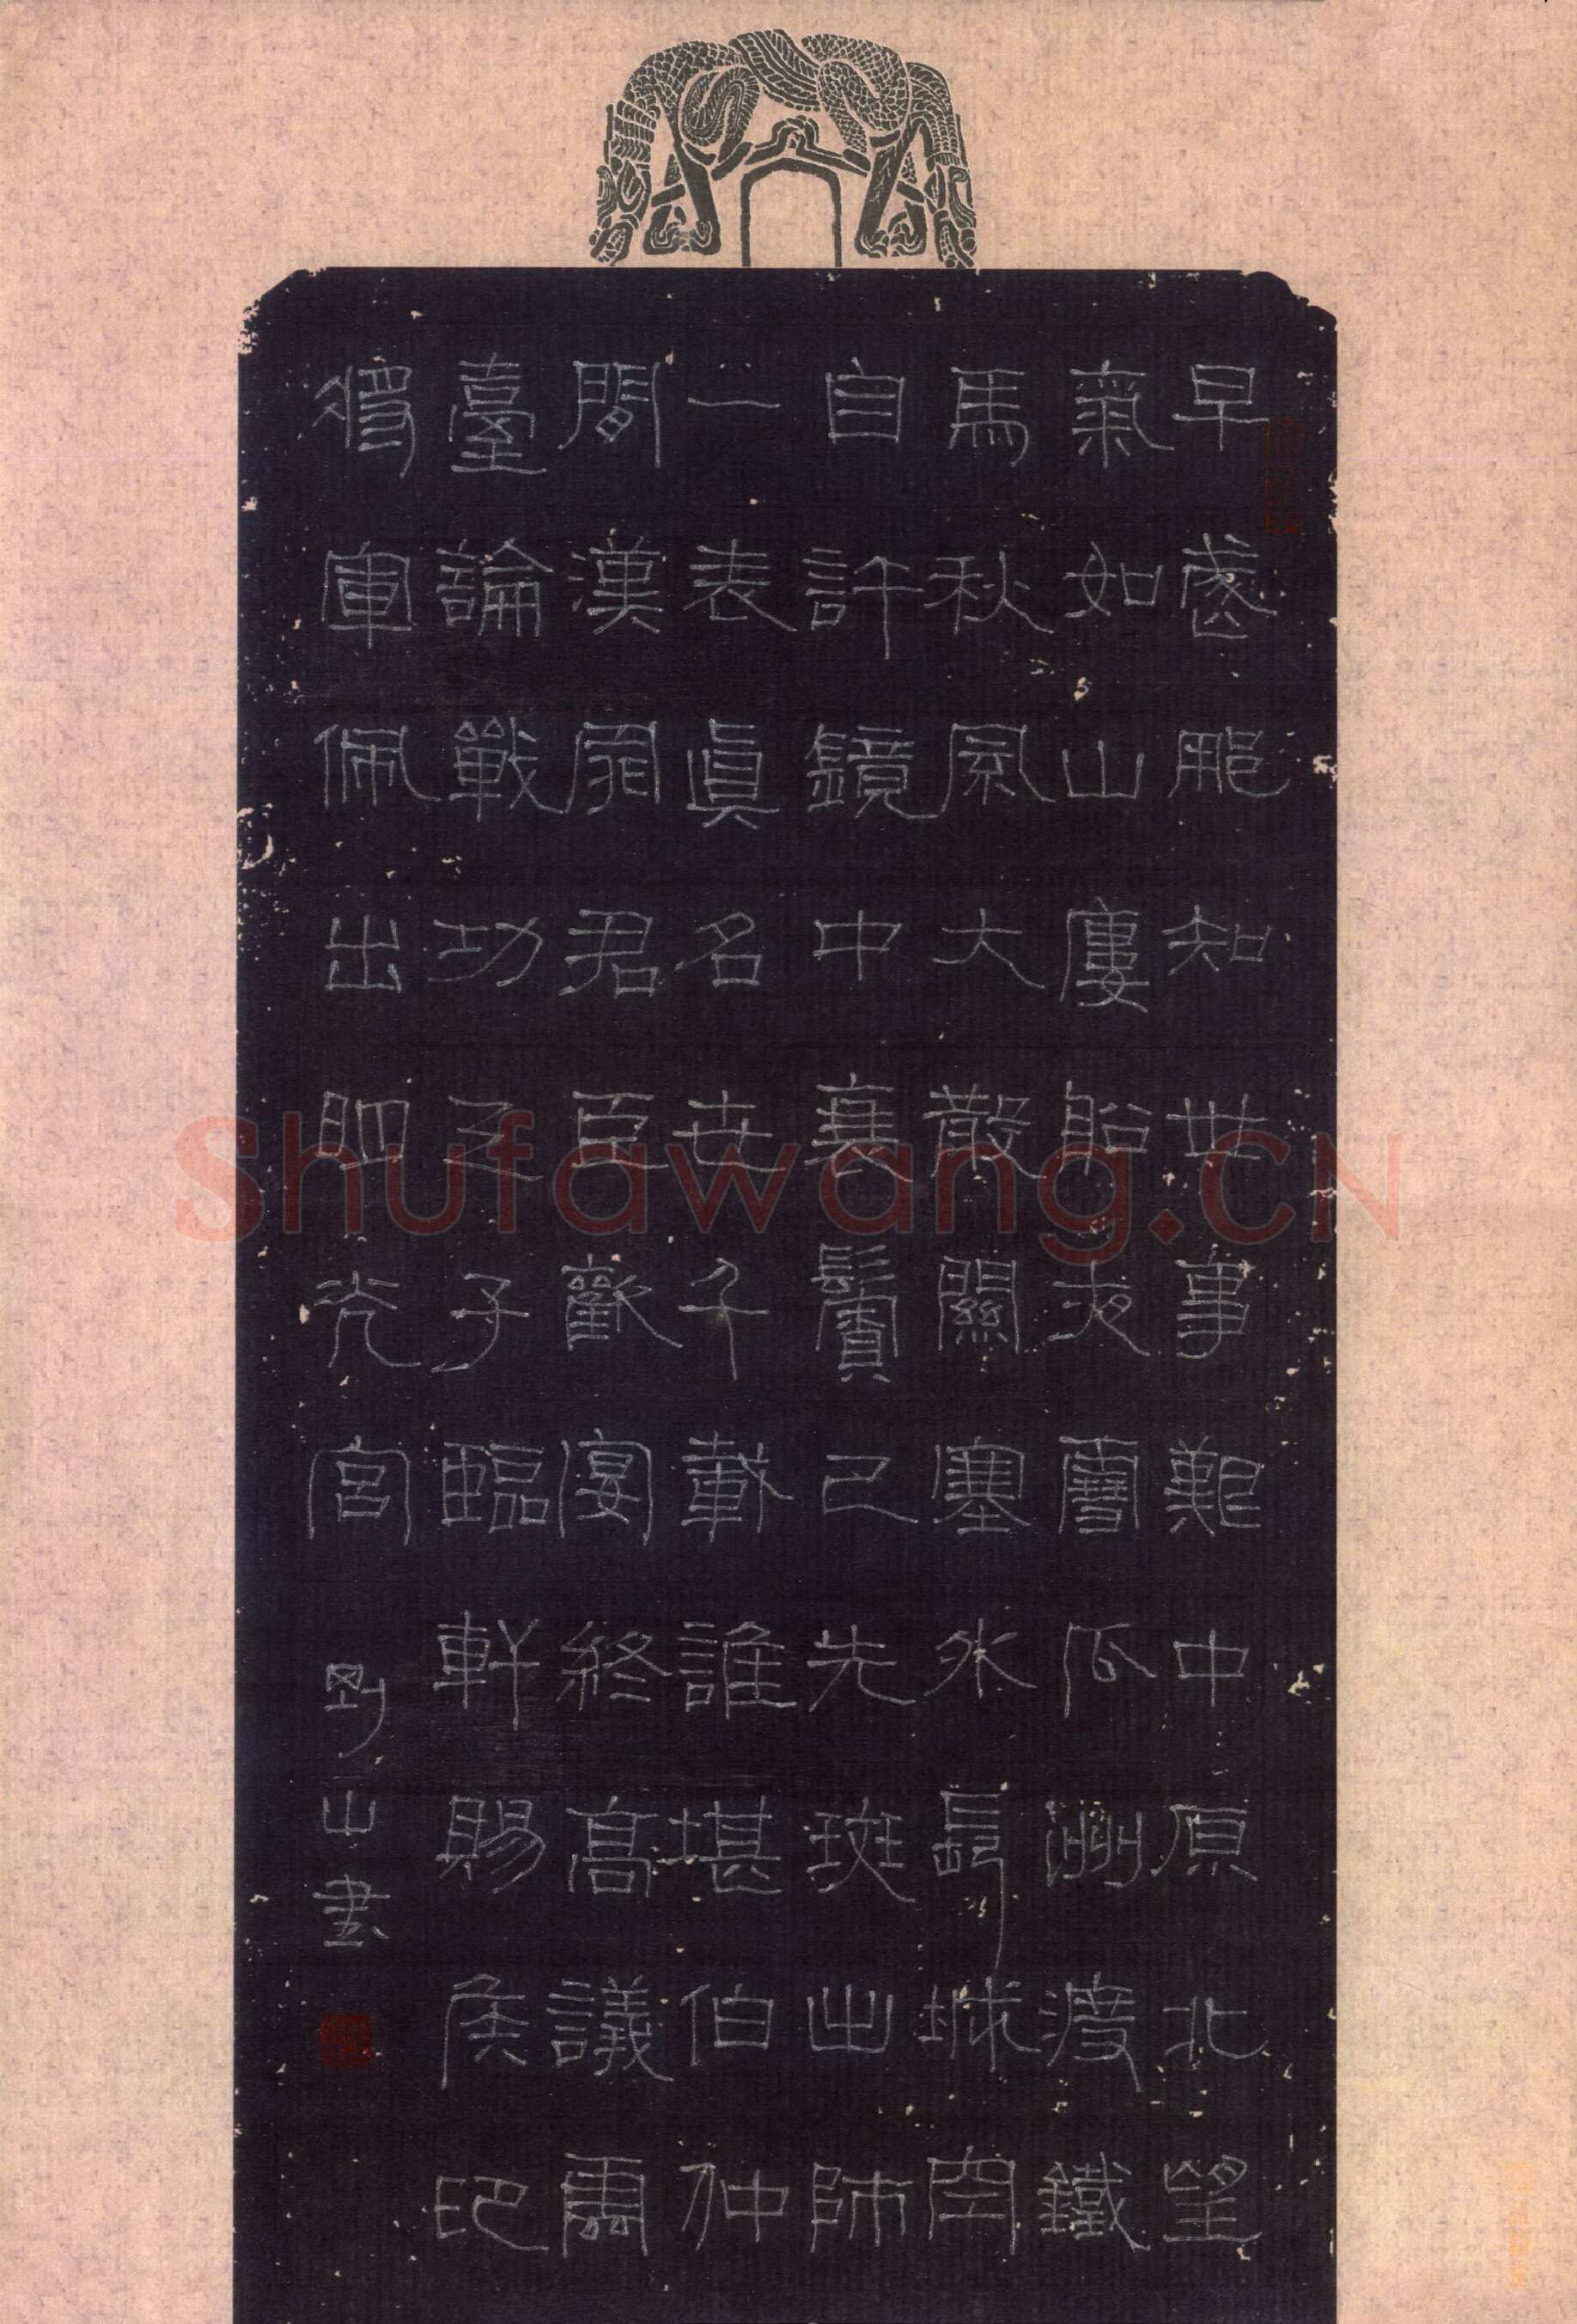 早歲那知世事艱中原北望
氣如山廔船夜雪瓜洲渡鐵
馬秋風大散關塞外長城空
自許鏡中衰鬢已先斑出師
一表真名世千載誰堪伯仲
間漢家君臣歡宴終高議雲
臺論戰功天子臨軒賜侯印
將軍佩出明光宮
剛山書
Shufawang.CN